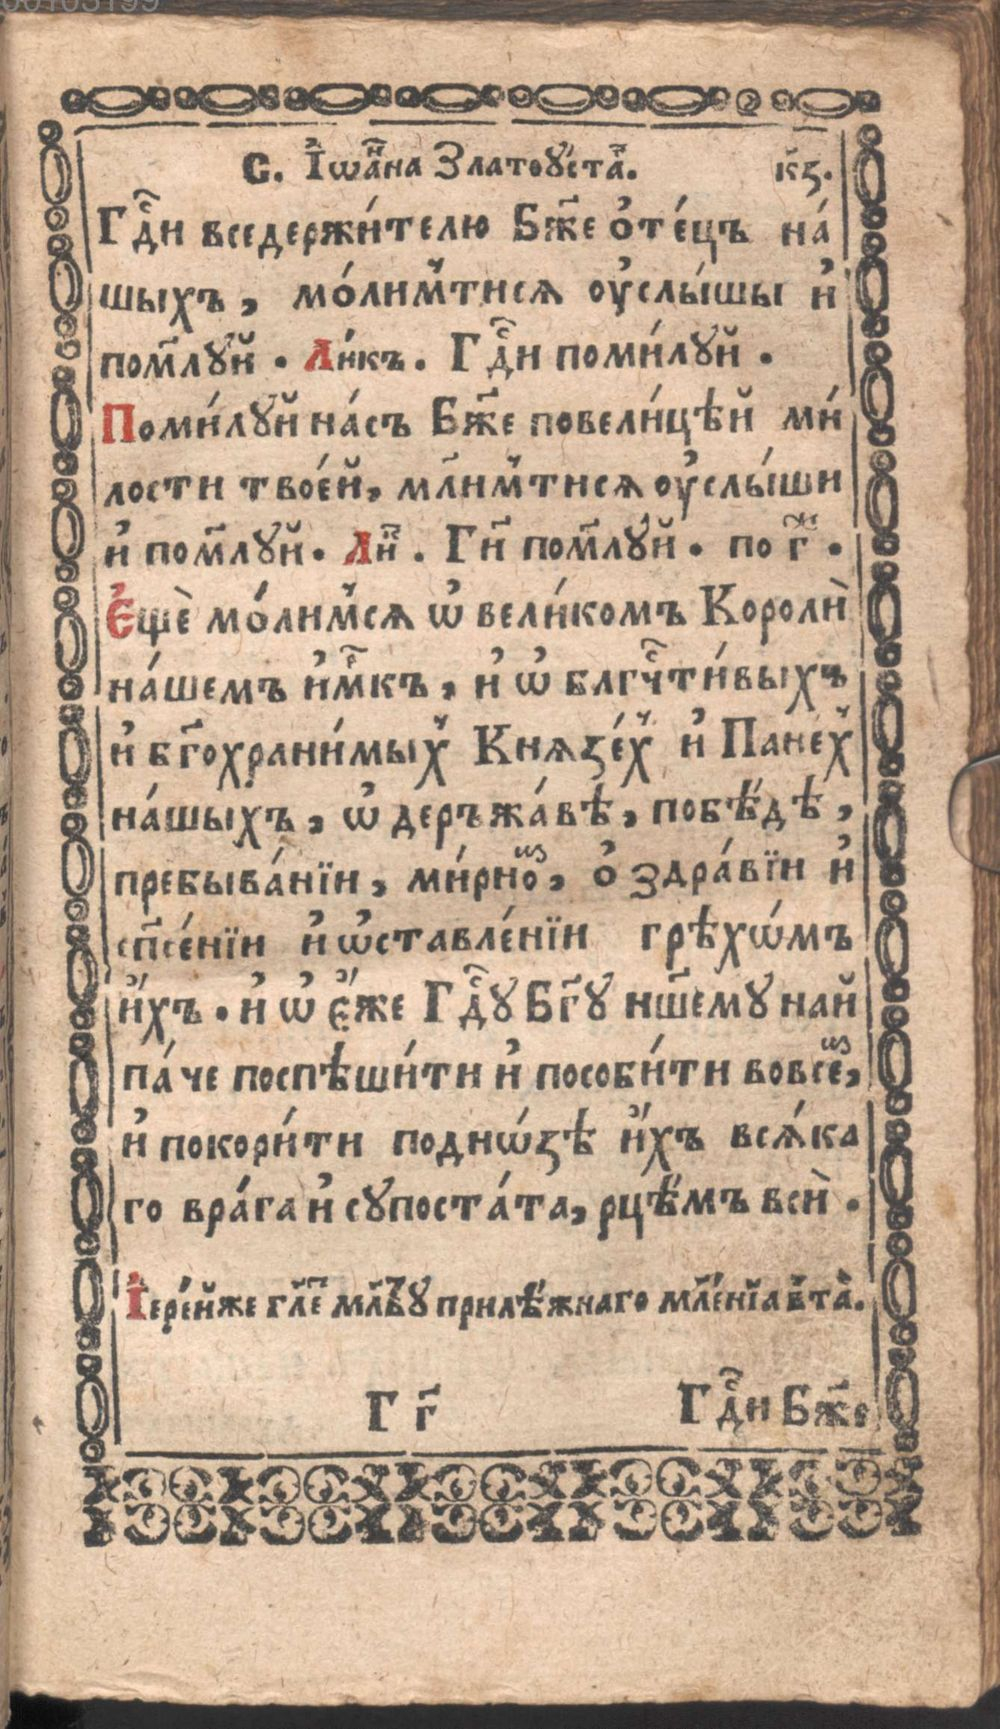 С. І҆ѡа́нⷩа Златоу́стаⷢ. к҃з.
Гдⷭ҇и вседержи́телю Бж҃е ѻ҆те́цъ на́
шыхъ, мо́лимⷱтися оу҆слы́шы и҆
пом҃лꙋй . Ли́къ . Гдⷭ҇и поми́лꙋй .
Поми́лꙋй на́съ Бж҃е повели́цѣй ми́
лости твое́й, мл҃имⷱтися оу҆слы́ши
и҆ пом҃лꙋ́й . Лиⷦ . Ги҃ пом҃лꙋ́й . по г҃ⷤ .
Є҆щѐ мо́лимⷱся ѡ҆ вели́комъ Королѝ
на́шемъ и҆мⷬкъ, и҆ ѡ҆ блгчⷭ҇ти́выхъ
и҆ бг҃охрани́мыⷯ Кнѧꙁе́ⷯ и҆ Пане́ⷯ
на́шыхъ, ѡ҆ деръжа́вѣ, побѣ́дѣ,
пребыва́нїи, ми́рноⷨ, ѻ҆ здра́вїи и҆
сп҃се́нїи и҆ѡ҆ставле́нїи грѣхѡ́мъ
и҆́хъ . и҆ ѡ҆ є҆́же Гдⷭ҇ꙋ Бг҃ꙋ нш҃емꙋ най
па́че поспѣши́ти и҆ пособи́ти вовсеⷨ,
и҆ покори́ти поднѡ́ꙁѣ и҆́хъ всѧ́ка
го вра́га и҆ сꙋпоста́та, рцѣ́мъ всѝ .
І҆ере́йже гл҃еⷮ мл҃вꙋ прилѣ́жнаго мл҃е́нїа вⷮта́ .
Г г҃ Гдⷭ҇и Бж҃е